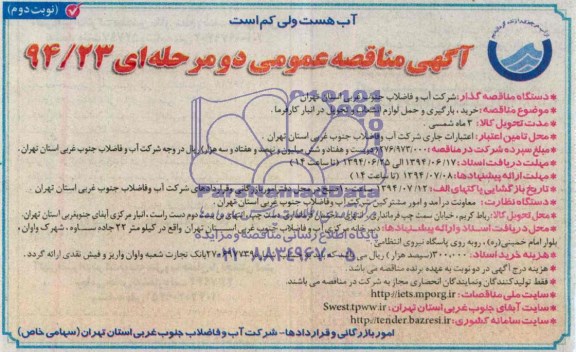 (نوبت دوم)
آب هست ولی کم است
آگهی مناقصه عمومی دو مرحله‌ای ۹۴/۲۳
دستگاه مناقصه گذار: شرکت آب و فاضلاب جنوب غربی استان تهران
موضوع مناقصه: خرید، بارگیری و حمل لوازم انشعاب و تحویل در انبار کارفرما.
مدت تحویل کالا: ۳ ماه شمسی.
محل تامین اعتبار: اعتبارات جاری شرکت آب و فاضلاب جنوب غربی استان تهران.
مبلغ سپرده شرکت در مناقصه: ۲۷۶/۹۷۳/۰۰۰ (دویست و هفتاد و شش میلیون و نهصد و هفتاد و سه هزار) ریال در وجه شرکت آب و فاضلاب جنوب غربی استان تهران.
مهلت دریافت اسناد: ۱۳۹۴/۰۶/۱۷ الی ۱۳۹۴/۰۶/۲۵ (تا ساعت ۱۴)
مهلت ارائه پیشنهادها: ۱۳۹۴/۰۷/۰۸ (تا ساعت ۱۴)
تاریخ بازگشایی پاکتهای الف: ۱۳۹۴/۰۷/۱۲ در محل دفتر امور بازرگانی و قراردادهای شرکت آب و فاضلاب جنوب غربی استان تهران
دستگاه نظارت: معاونت درآمد و امور مشترکین شرکت آب و فاضلاب جنوب غربی استان تهران.
محل تحویل کالا: رباط کریم، خیابان سمت چپ فرمانداری، دست دوم راست، انبار مرکزی آبفای جنوبغربی استان تهران.
محل دریافت اسناد و ارائه پیشنهادها: دبیرخانه مرکزی آب و فاضلاب جنوب غربی استان تهران واقع در کیلومتر ۲۲ جاده ساوه، شهرک واوان،
بلوار امام خمینی(ره)، روبه روی پاسگاه نیروی انتظامی.
هزینه خرید اسناد: ۳۰۰/۰۰۰ (سیصد هزار) ریال می باشد که بانک تجارت شعبه واوان واریز و فیش نقدی ارائه گردد.
هزینه درج آگهی در دو نوبت به عهده برنده مناقصه می باشد.
فقط تولیدکنندگان ونمایندگان انحصاری مجاز به شرکت در مناقصه می باشند.
سایت ملی مناقصات: http://iets.mporg.ir
سایت آبفای جنوب غربی استان تهران: Swest.tpww.ir
سایت سامانه کشوری: http//tender.bazresi.ir
امور بازرگانی و قراردادها - شرکت آب و فاضلاب جنوب غربی استان تهران (سهامی خاص)
ParsNamadData
پایگاه اطلاع رسانی مناقصه و مزایده
۰۲۱-۸۸۳۴۹۶۷۰-۵